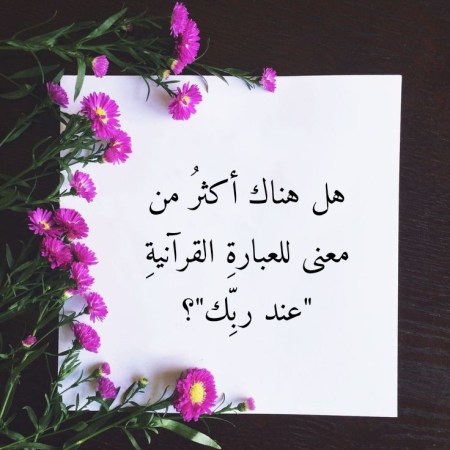 هل هناك أكثرُ من
معنى للعبارةِ القرآنيةِ
"عند ربِّك"؟